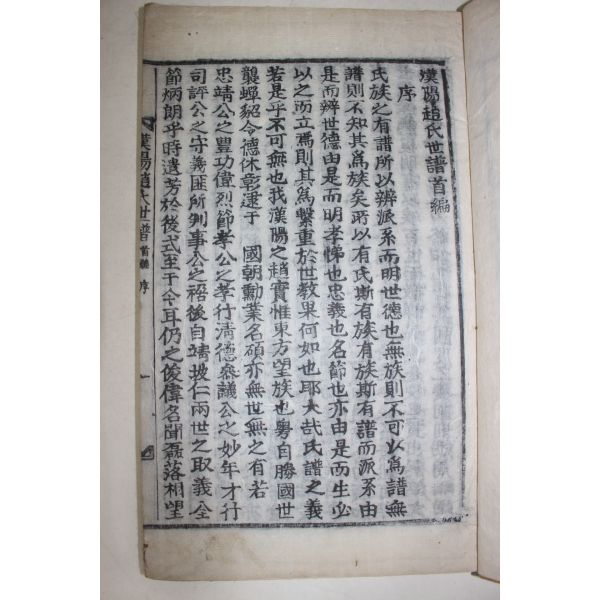 漢陽趙氏世譜首編
序
氏族之有譜所以辨派系而明世德也無族則不可以爲譜無
譜則不知其爲族矣所以有氏斯有族有族斯有譜而派系由
是而辨世德由是而明孝悌也忠義也名節也亦由是而生必
以之而立焉則其爲繫重於世教果何如也耶大哉氏譜之義
若是乎不可無也我漢陽之趙實惟東方望族也粤自勝國世
襲蟬貂令德休彰逮于 國朝勳業名碩亦無世無之有若
忠靖公之豊功偉烈節孝公之孝行清德參議公之妙年才行
司評公之守義匪所判事公之裕後自靖坡仁兩世之取義全
節炳朗乎時遺芳於後式至于今耳仍之俊偉名聞磊落相望
漢陽趙氏世譜 首編 序 一